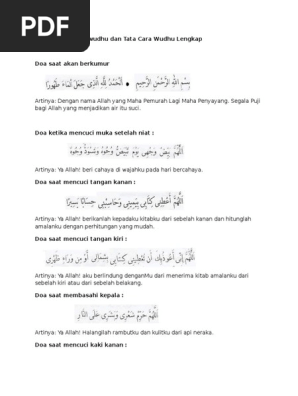 PDF
wudhu dan Tata Cara Wudhu Lengkap
Doa saat akan berkumur
بِسْمِ اللهِ الرَّحْمٰنِ الرَّحِيْمِ • اَلْحَمْدُ لِلّٰهِ الَّذِى جَعَلَ الْمَاءَ طَهُوْرًا
Artinya: Dengan nama Allah yang Maha Pemurah Lagi Maha Penyayang. Segala Puji
bagi Allah yang menjadikan air itu suci.
Doa ketika mencuci muka setelah niat :
اَللّٰهُمَّ بَيِّضْ وَجْهِى يَوْمَ تَبْيَضُّ وُجُوْهٌ وَتَسْوَدُّ وُجُوْهٌ
Artinya: Ya Allah! beri cahaya di wajahku pada hari bercahaya.
Doa saat mencuci tangan kanan :
اَللّٰهُمَّ اَعْطِنِى كِتَابِى بِيَمِيْنِى وَحَاسِبْنِى حِسَابًا يَسِيْرًا
Artinya: Ya Allah! berikanlah kepadaku kitabku dari sebelah kanan dan hitunglah
amalanku dengan perhitungan yang mudah.
Doa saat mencuci tangan kiri :
اَللّٰهُمَّ اِنِّى اَعُوْذُ بِكَ اَنْ تُعْطِيَنِى كِتَابِى بِشِمَالِى اَوْ مِنْ وَرَاءِ ظَهْرِى
Artinya: Ya Allah! aku berlindung denganMu dari menerima kitab amalanku dari
sebelah kiri atau dari sebelah belakang.
Doa saat membasahi kepala :
اَللّٰهُمَّ حَرِّمْ شَعْرِى وَبَشَرِى عَلَى النَّارِ
Artinya: Ya Allah! Halangilah rambutku dan kulitku dari api neraka.
Doa saat mencuci kaki kanan :